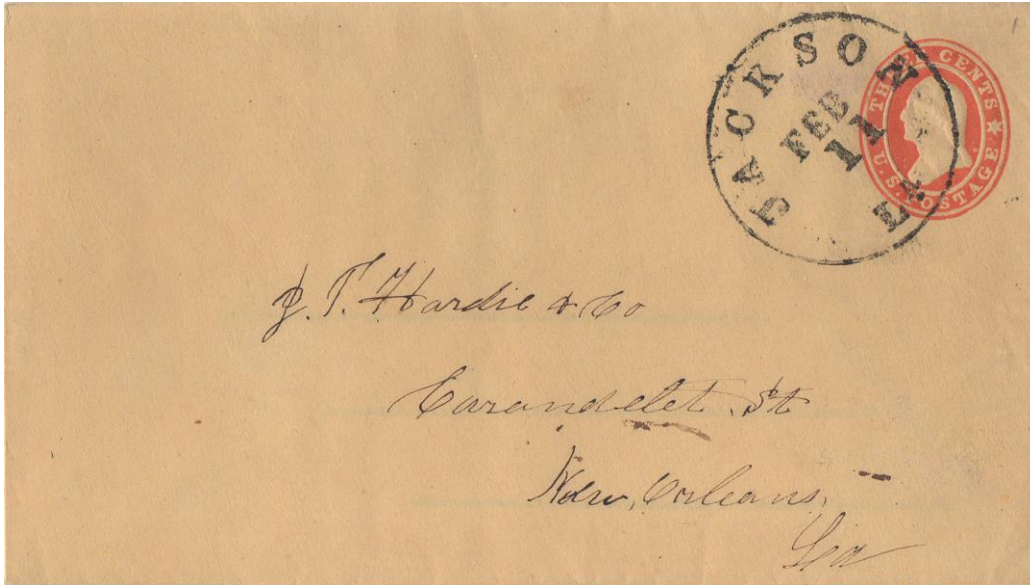 JACKSON LA
FEB
11
THREE CENTS
U.S. POSTAGE
J. T. Hardie & Co
Carandelet St
New Orleans,
La